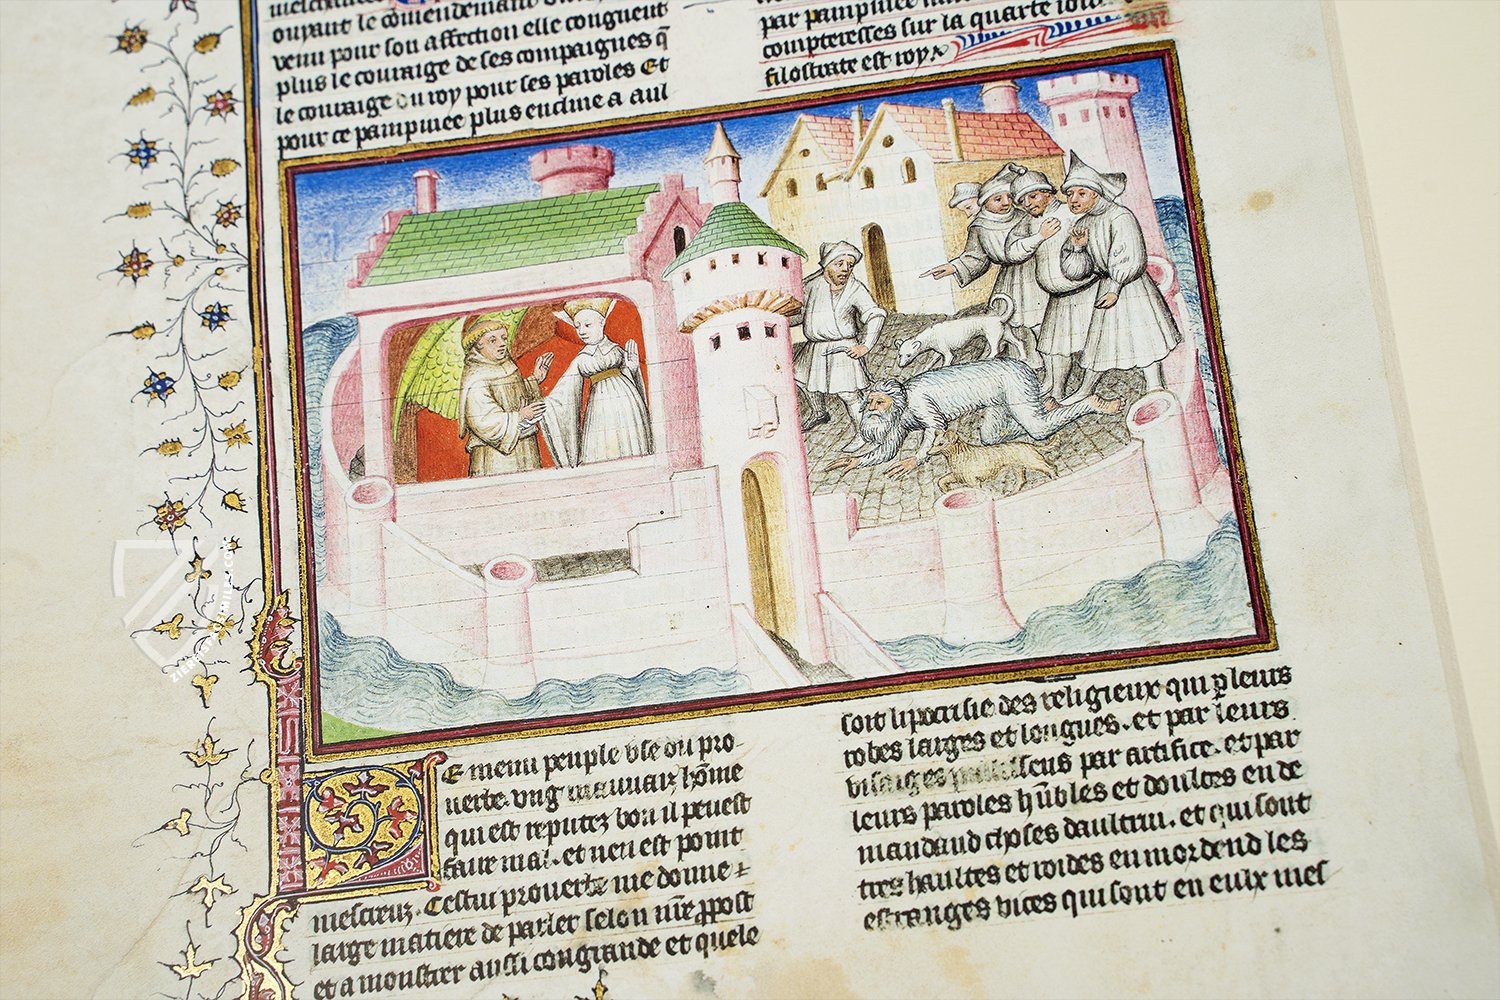 ouyant le comendement
venu pour son affection elle congneut
plus le couraige de ses compaignes q̄
le couraige du roy pour ses paroles Et
pour ce pampinee plus encline a aul
par pampinee
compteresses sur la quarte
filostrate est roy.
LE menu peuple vse du pro-
uerbe. vng mauuaiz hōme
qui est reputez bon il peuest
faire mal. et nen est point
mescreuz. Cestui prouerbe me donne
large matiere de parler selon nr̄e ꝓpost
et a monstrer aussi congrande et quele
soit lipocrisie des religieux qui ꝑ leurs
robes larges et longues. et par leurs
visaiges par artifice. et par
leurs paroles hūbles et doulces en de
mandand choses daultrui. et qui sont
tres haultes et roides en mordend les
estranges vices qui sont en eulx mes